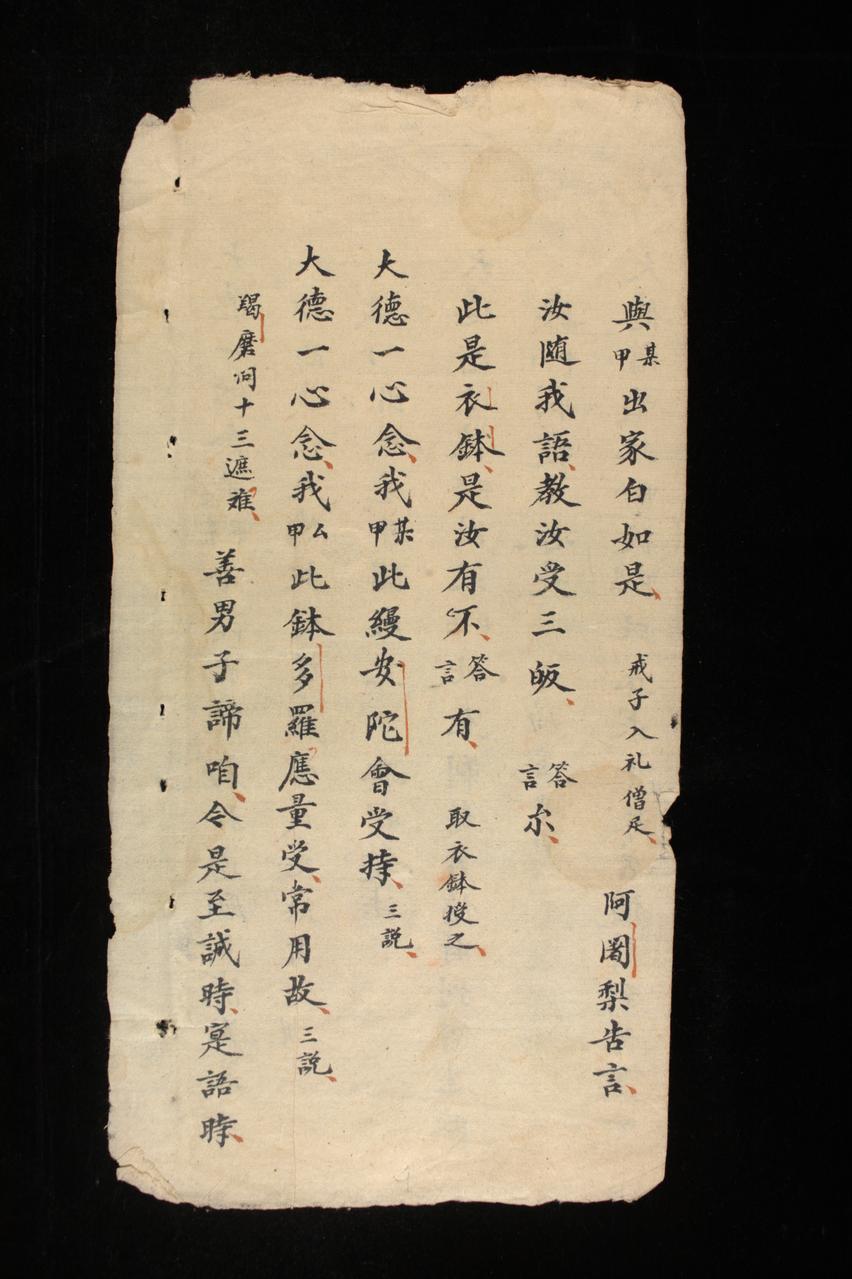 與某甲出家白如是、戒子入礼僧足、阿闍梨告言、
汝随我語、教汝受三皈、答言尓、
此是衣鉢、是汝有不、答言有、取衣鉢授之、
大德一心念、我某甲此縵安陀會受持、三説、
大德一心念、我厶甲此鉢多羅應量受、常用故、三説、
羯磨问十三遮难、善男子諦咱、令是至誠時、寔語時、